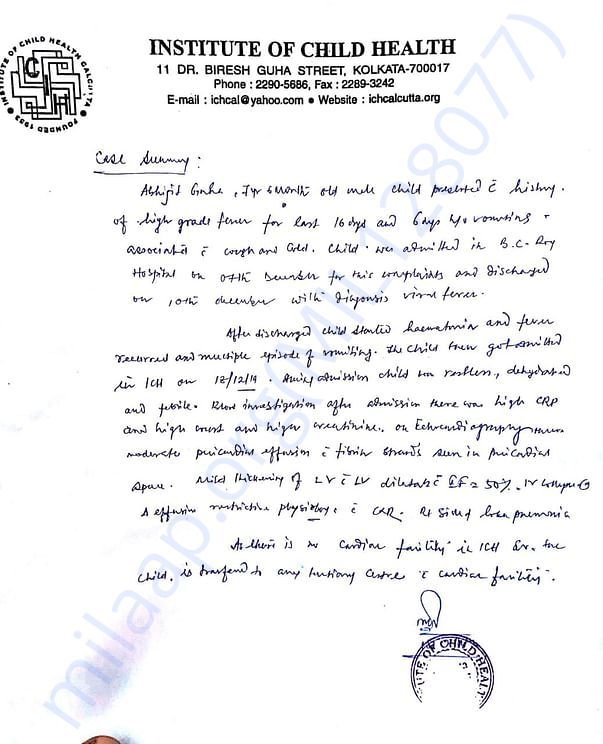 INSTITUTE OF CHILD HEALTH CALCUTTA
FOUNDED 1953
ICH
INSTITUTE OF CHILD HEALTH
11 DR. BIRESH GUHA STREET, KOLKATA-700017
Phone : 2290-5686, Fax : 2289-3242
E-mail : ichcal@yahoo.com ● Website : ichcalcutta.org
Case Summary :
Abhijit , 7yr 6 month old male child presented c̄ history
of high grade fever for last 16 days and 6 days h/o vomiting
associated c̄ cough and cold. Child was admitted in B.C. Roy
Hospital on 07th December for this complaints and discharged
on 10th december with diagnosis viral fever.
After discharged child started haematuria and fever
recurred and multiple episode of vomiting. The child then got admitted
in ICH on 12/19. During admission child was restless, dehydrated
and febrile. Blood investigation after admission there was high CRP
and high and high creatinine. on Echocardiography
moderate pericardial effusion c̄ fibrin strands seen in pericardial
space. Mild thickening of LV c̄ LV EF = 50%. IV
effusion restrictive physiology. c̄ CXR. Rt sided pneumonia
As there is no cardiac facility in ICH the
child. is transferd to any tertiary centre c̄ cardiac facility.
INSTITUTE OF CHILD HEALTH
milaap.org(MIL128077)